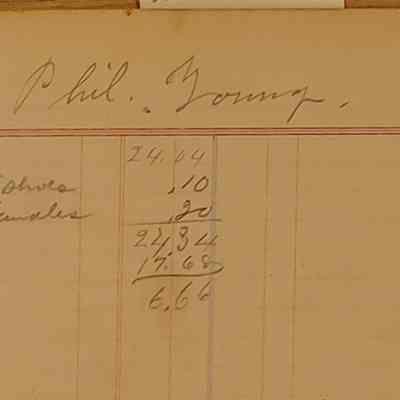 Phil. Young.
24.04
shoes .10
.20
24.34
17.68
6.66